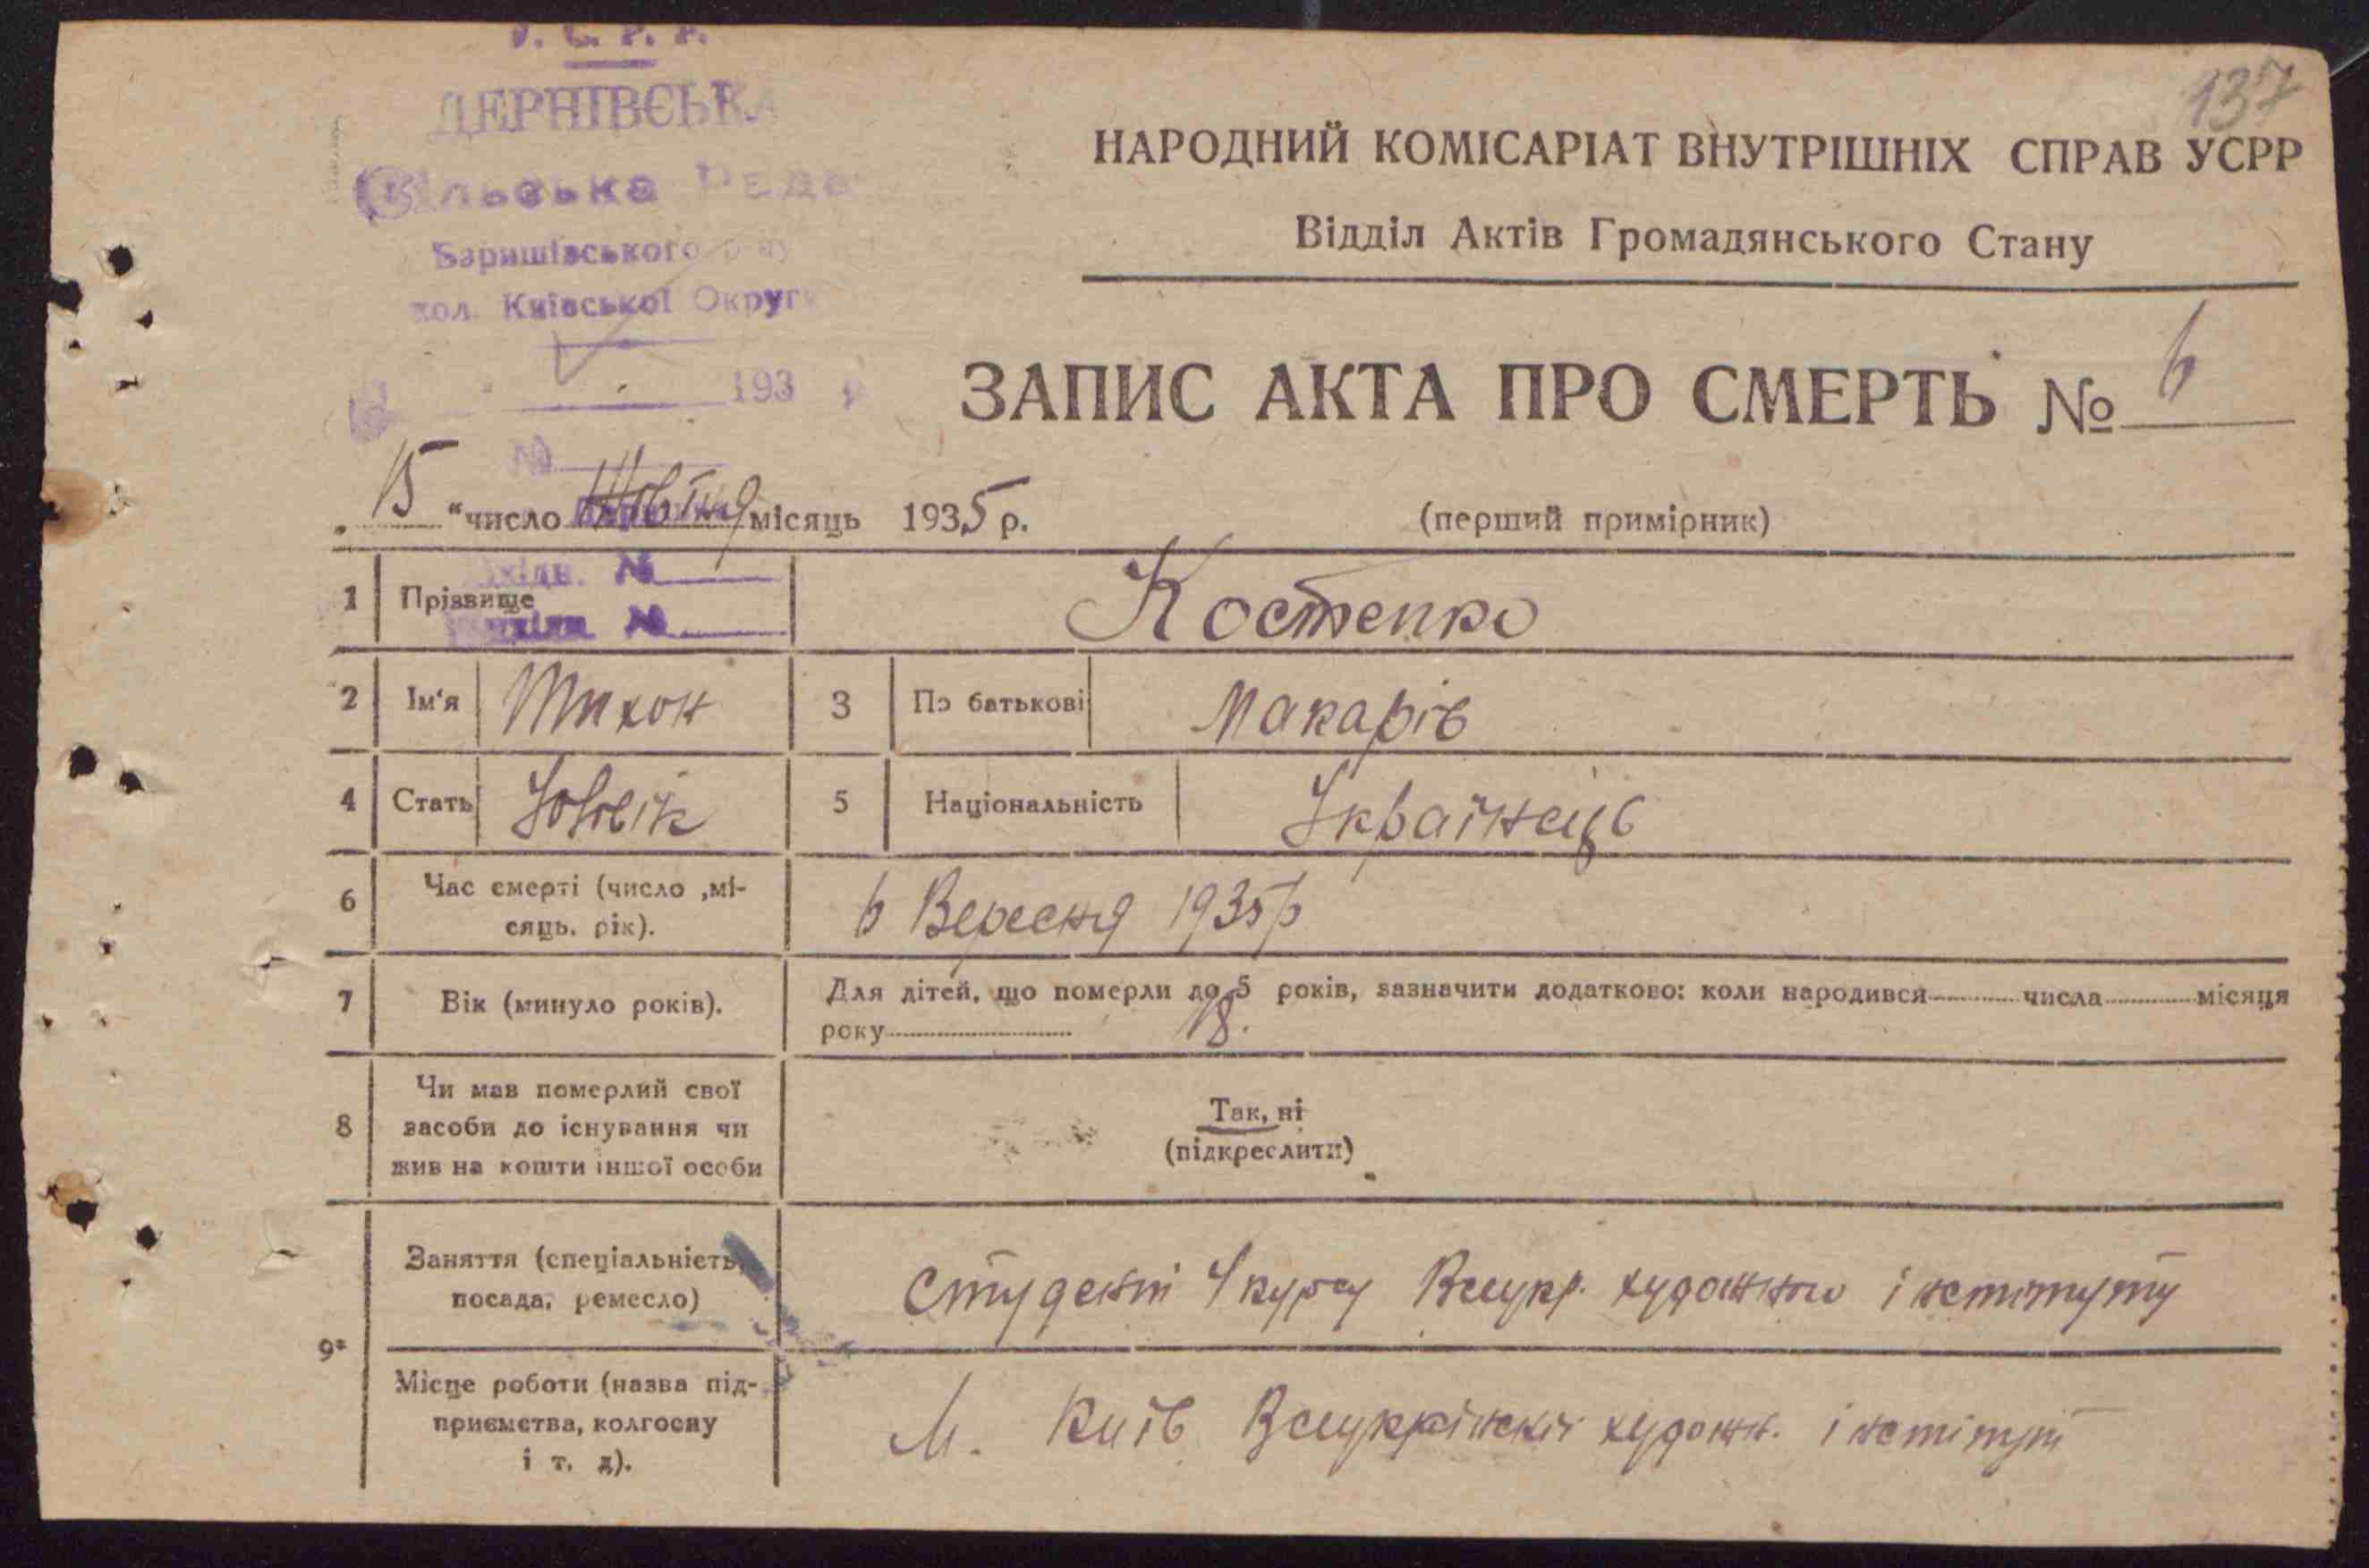 У. С. Р. Р.
ДЕРНІВСЬКА
Сільська Рада
Баришівського р-ну
кол. Київської Округи
193 р
№
137
НАРОДНИЙ КОМІСАРІАТ ВНУТРІШНІХ СПРАВ УСРР
Відділ Актів Громадянського Стану
ЗАПИС АКТА ПРО СМЕРТЬ № 6
„ 15 “ число Жовтня місяць 1935 р.
(перший примірник)
1 Прізвище Костенко
№
№
2 Ім'я Тихон 3 По батькові Макарів
4 Стать Чоловік 5 Національність Українець
6 Час смерті (число ,мі-
сяць. рік).
6 Вересня 1935 р
7 Вік (минуло років).
Для дітей, що померли до 5 років, зазначити додатково: коли народився числа місяця
року 18.
8 Чи мав померлий свої
засоби до існування чи
жив на кошти іншої особи
Так, ні
(підкреслити)
9* Заняття (спеціальність,
посада, ремесло)
студент 4 курсу Всеукр. інституту
Місце роботи (назва під-
приємства, колгоспу
і т. д).
М. Київ художн. інститут